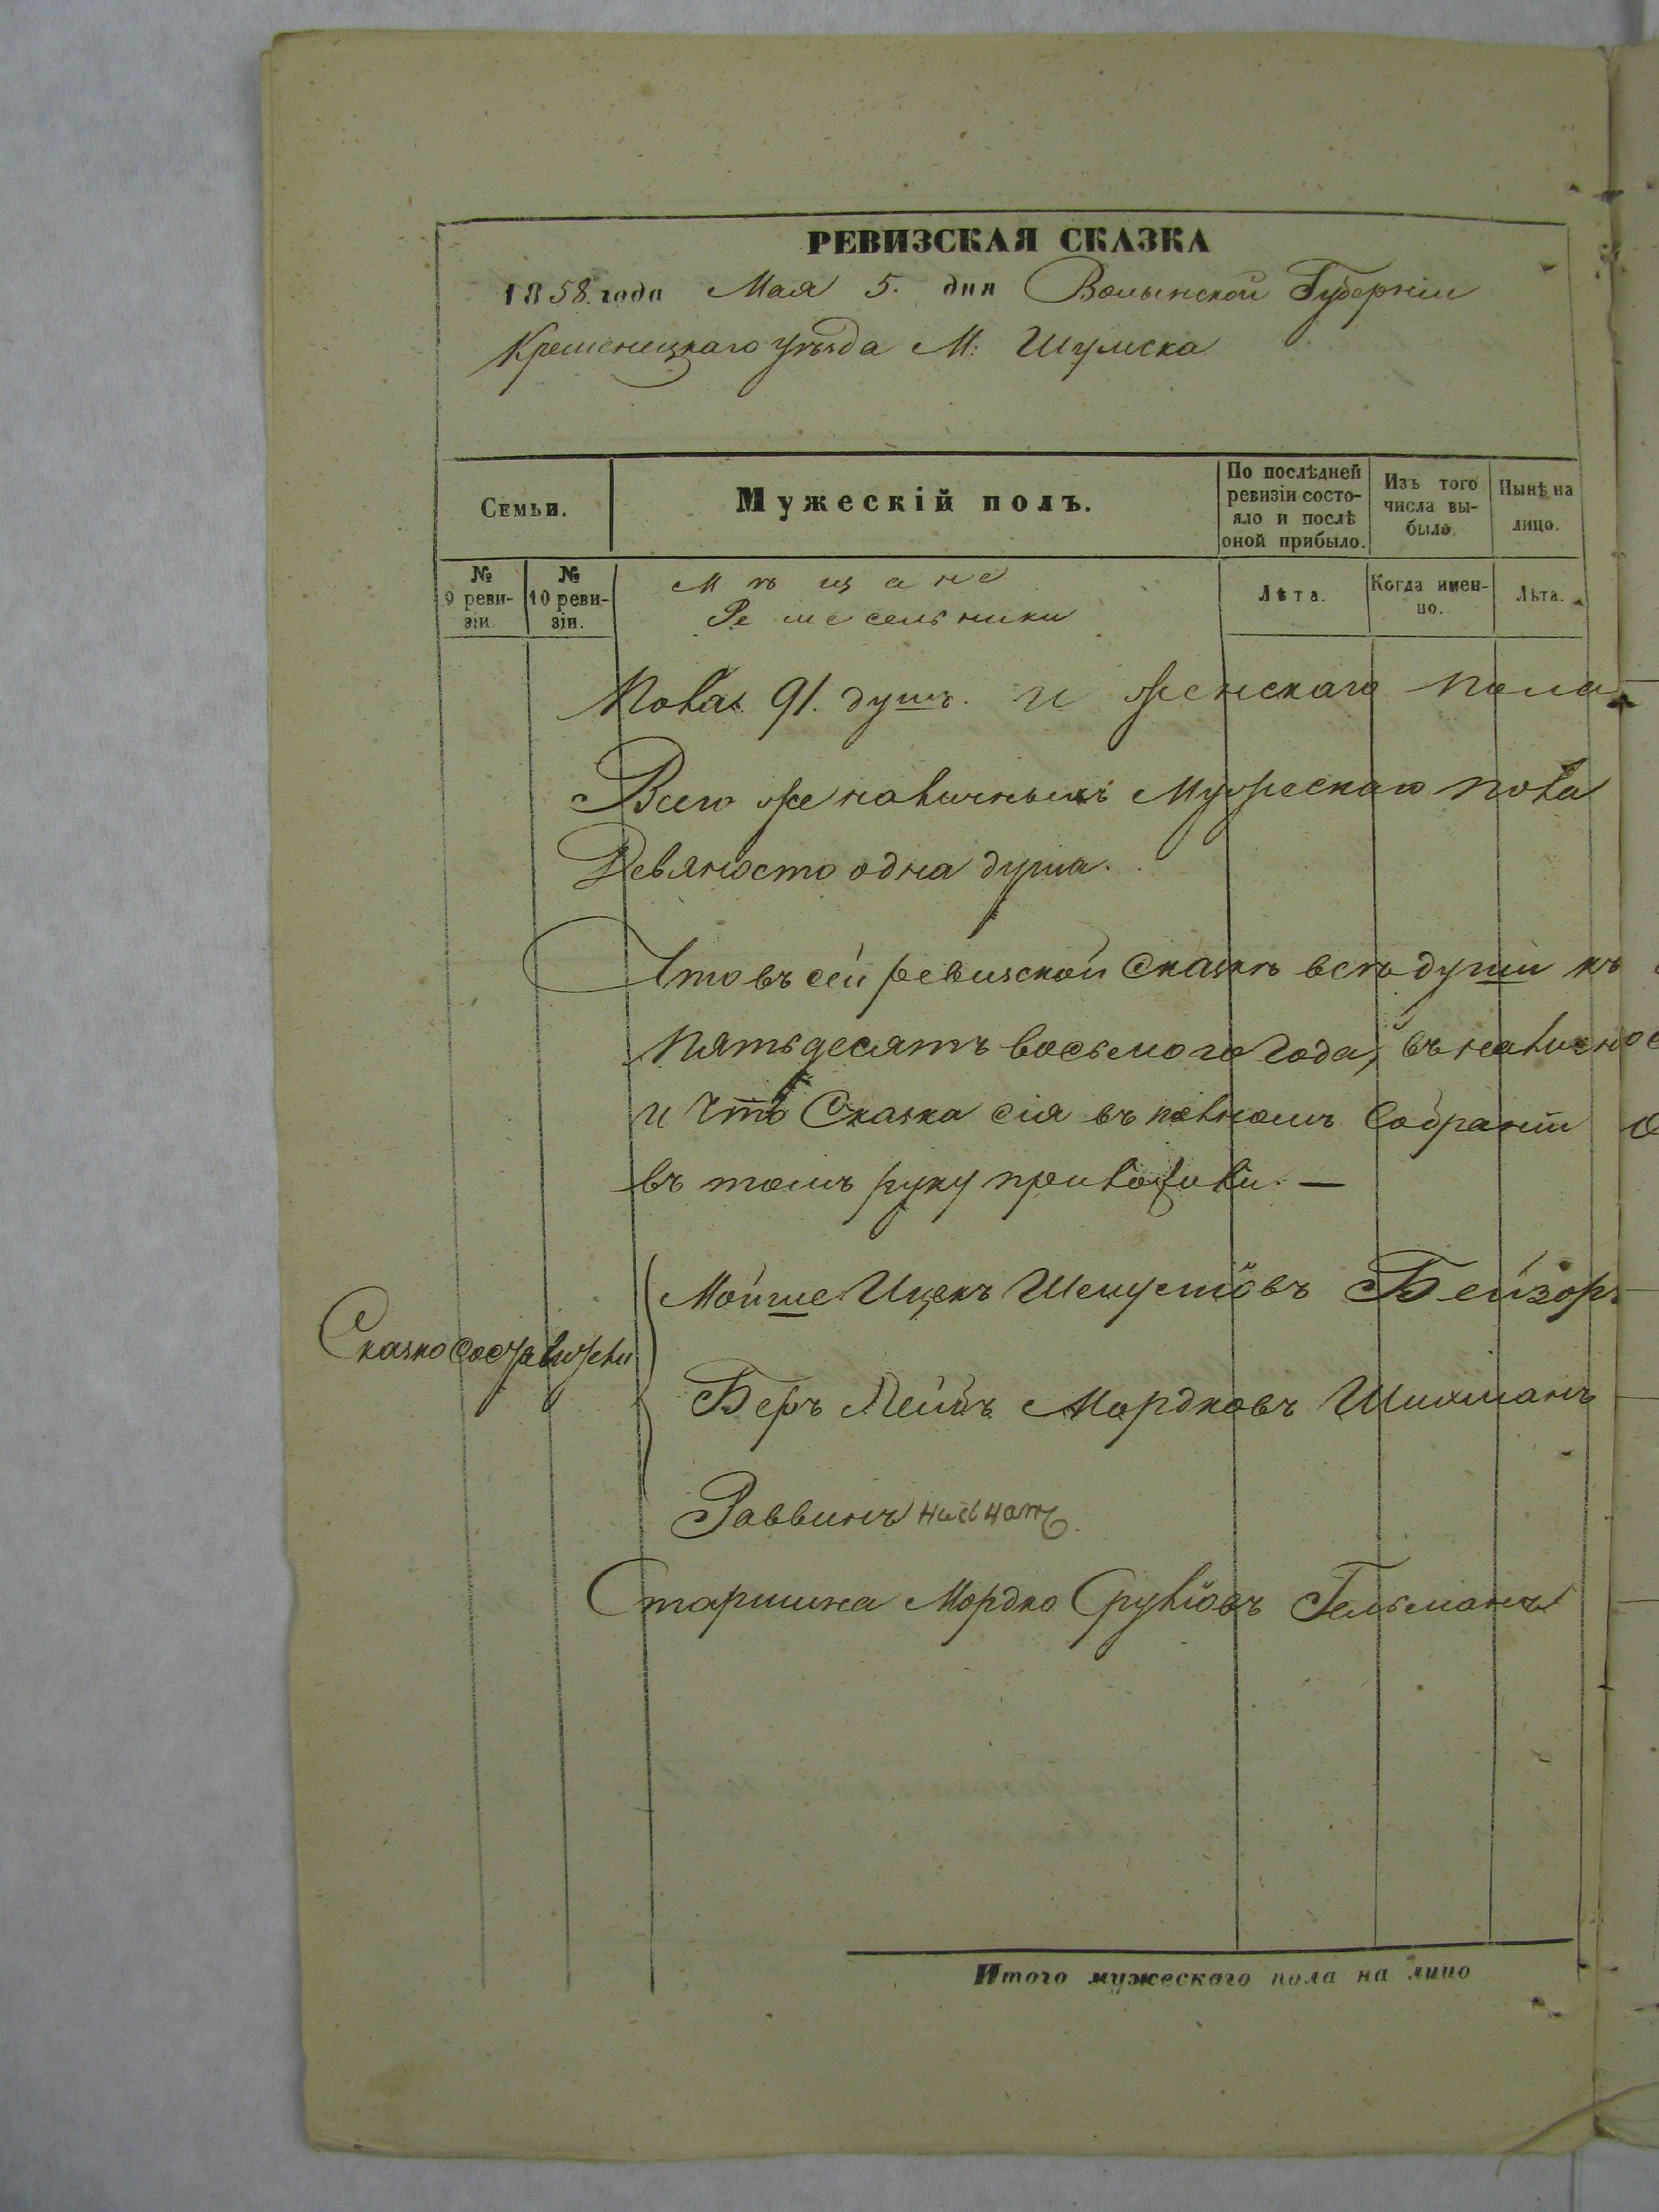 РЕВИЗСКАЯ СКАЗКА
1858. года Мая 5. дня Волынской Губерніи
Кременецкаго уѣзда М: Шумска
Семьи.
Мужескій полъ.
По послѣдней ревизіи состояло и послѣ оной прибыло.
Изъ того числа выбыло.
Нынѣ на лицо.
№ 9 ревизіи
№ 10 ревизіи.
Мѣщане
Ремесельники
Лѣта.
Когда именно.
Лѣта.
Пола 91. душъ. и женскаго пола
Всего же наличныхъ мужескаго пола
Девяносто одна душа.
Что въ сей ревизской сказкѣ всѣ души къ
пятьдесятъ восьмого года, въ наличнос
и что Сказка сія въ полномъ собраніи
въ томъ руку приложили. —
Сказкосоставители
Мойше Ицекъ Бейзоръ
Беръ Лейбъ Мордковъ Шихманъ
Раввинъ
Старшина Мордко Срулiовъ Гельманъ
Итого мужескаго пола на лицо